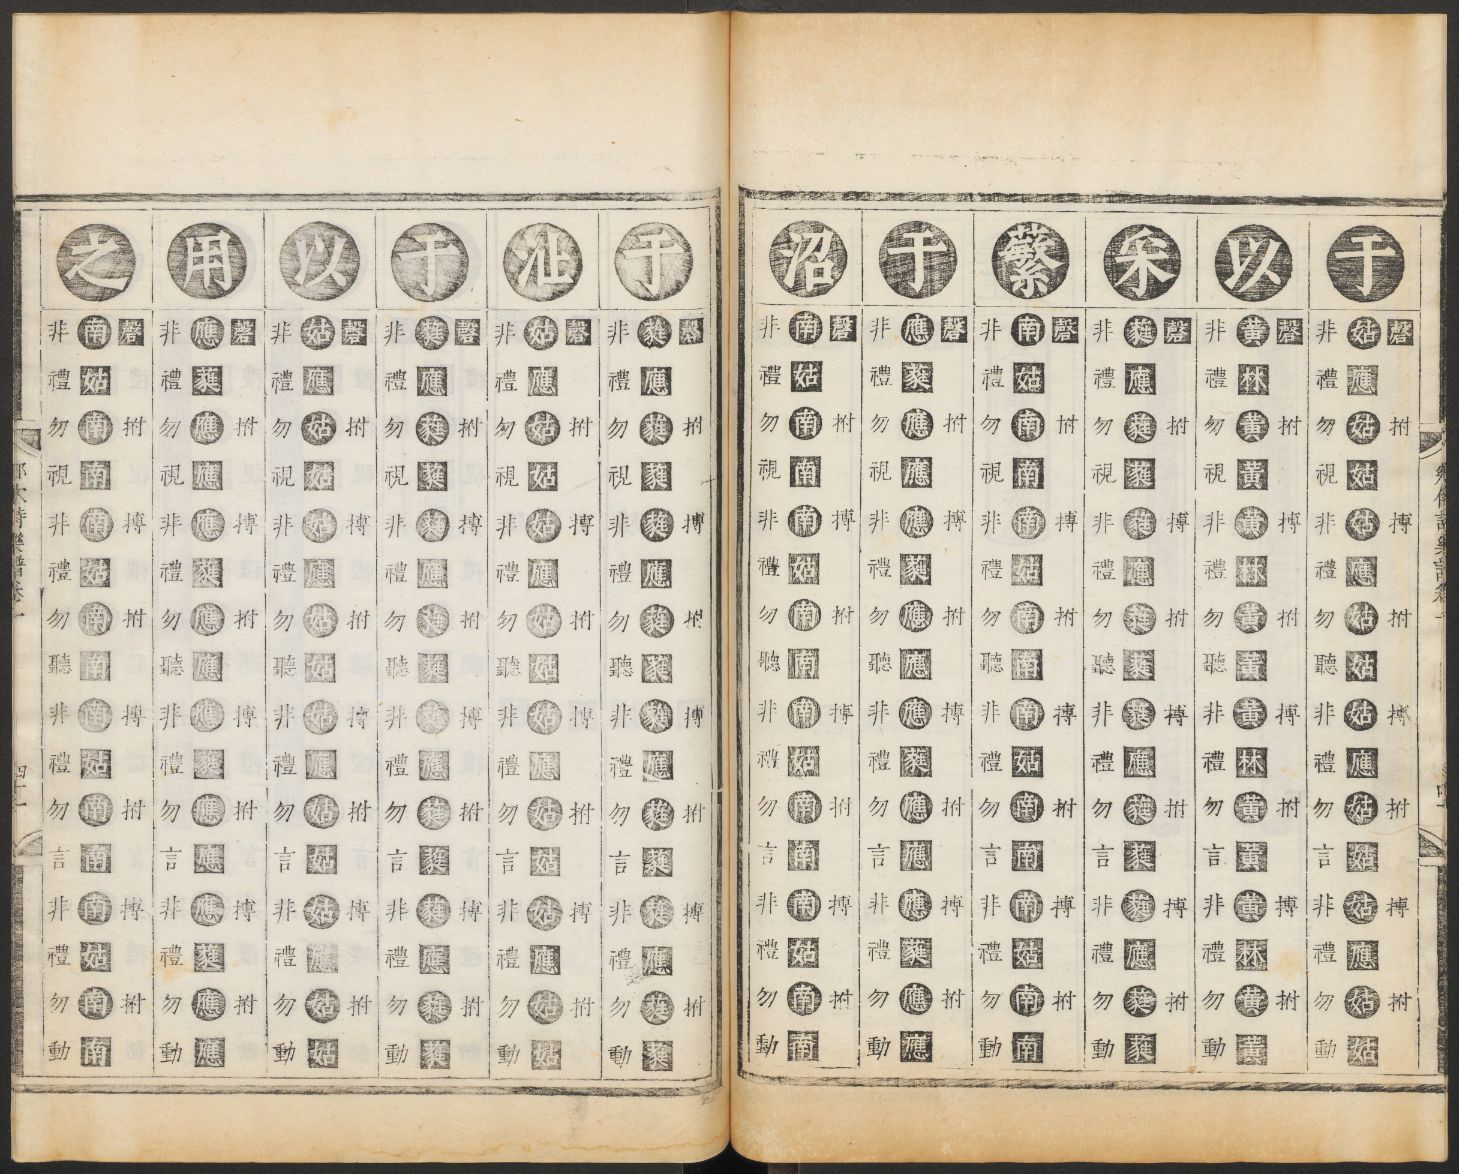 于
磬拊搏拊搏拊搏拊
姑應姑姑姑應姑姑姑應姑姑姑應姑姑
非禮勿視非禮勿聽非禮勿言非禮勿動
以
磬拊搏拊搏拊搏拊
黃林黃黃黃林黃黃黃林黃黃黃林黃黃
非禮勿視非禮勿聽非禮勿言非禮勿動
采
磬拊搏拊搏拊搏拊
蕤應蕤蕤蕤應蕤蕤蕤應蕤蕤蕤應蕤蕤
非禮勿視非禮勿聽非禮勿言非禮勿動
蘩
磬拊搏拊搏拊搏拊
南姑南南南姑南南南姑南南南姑南南
非禮勿視非禮勿聽非禮勿言非禮勿動
于
磬拊搏拊搏拊搏拊
應蕤應應應蕤應應應蕤應應應蕤應應
非禮勿視非禮勿聽非禮勿言非禮勿動
沼
磬拊搏拊搏拊搏拊
南姑南南南姑南南南姑南南南姑南南
非禮勿視非禮勿聽非禮勿言非禮勿動
于
磬拊搏拊搏拊搏拊
蕤應蕤蕤蕤應蕤蕤蕤應蕤蕤蕤應蕤蕤
非禮勿視非禮勿聽非禮勿言非禮勿動
沚
磬拊搏拊搏拊搏拊
姑應姑姑姑應姑姑姑應姑姑姑應姑姑
非禮勿視非禮勿聽非禮勿言非禮勿動
于
磬拊搏拊搏拊搏拊
蕤應蕤蕤蕤應蕤蕤蕤應蕤蕤蕤應蕤蕤
非禮勿視非禮勿聽非禮勿言非禮勿動
以
磬拊搏拊搏拊搏拊
姑應姑姑姑應姑姑姑應姑姑姑應姑姑
非禮勿視非禮勿聽非禮勿言非禮勿動
用
磬拊搏拊搏拊搏拊
應蕤應應應蕤應應應蕤應應應蕤應應
非禮勿視非禮勿聽非禮勿言非禮勿動
之
磬拊搏拊搏拊搏拊
南姑南南南姑南南南姑南南南姑南南
非禮勿視非禮勿聽非禮勿言非禮勿動